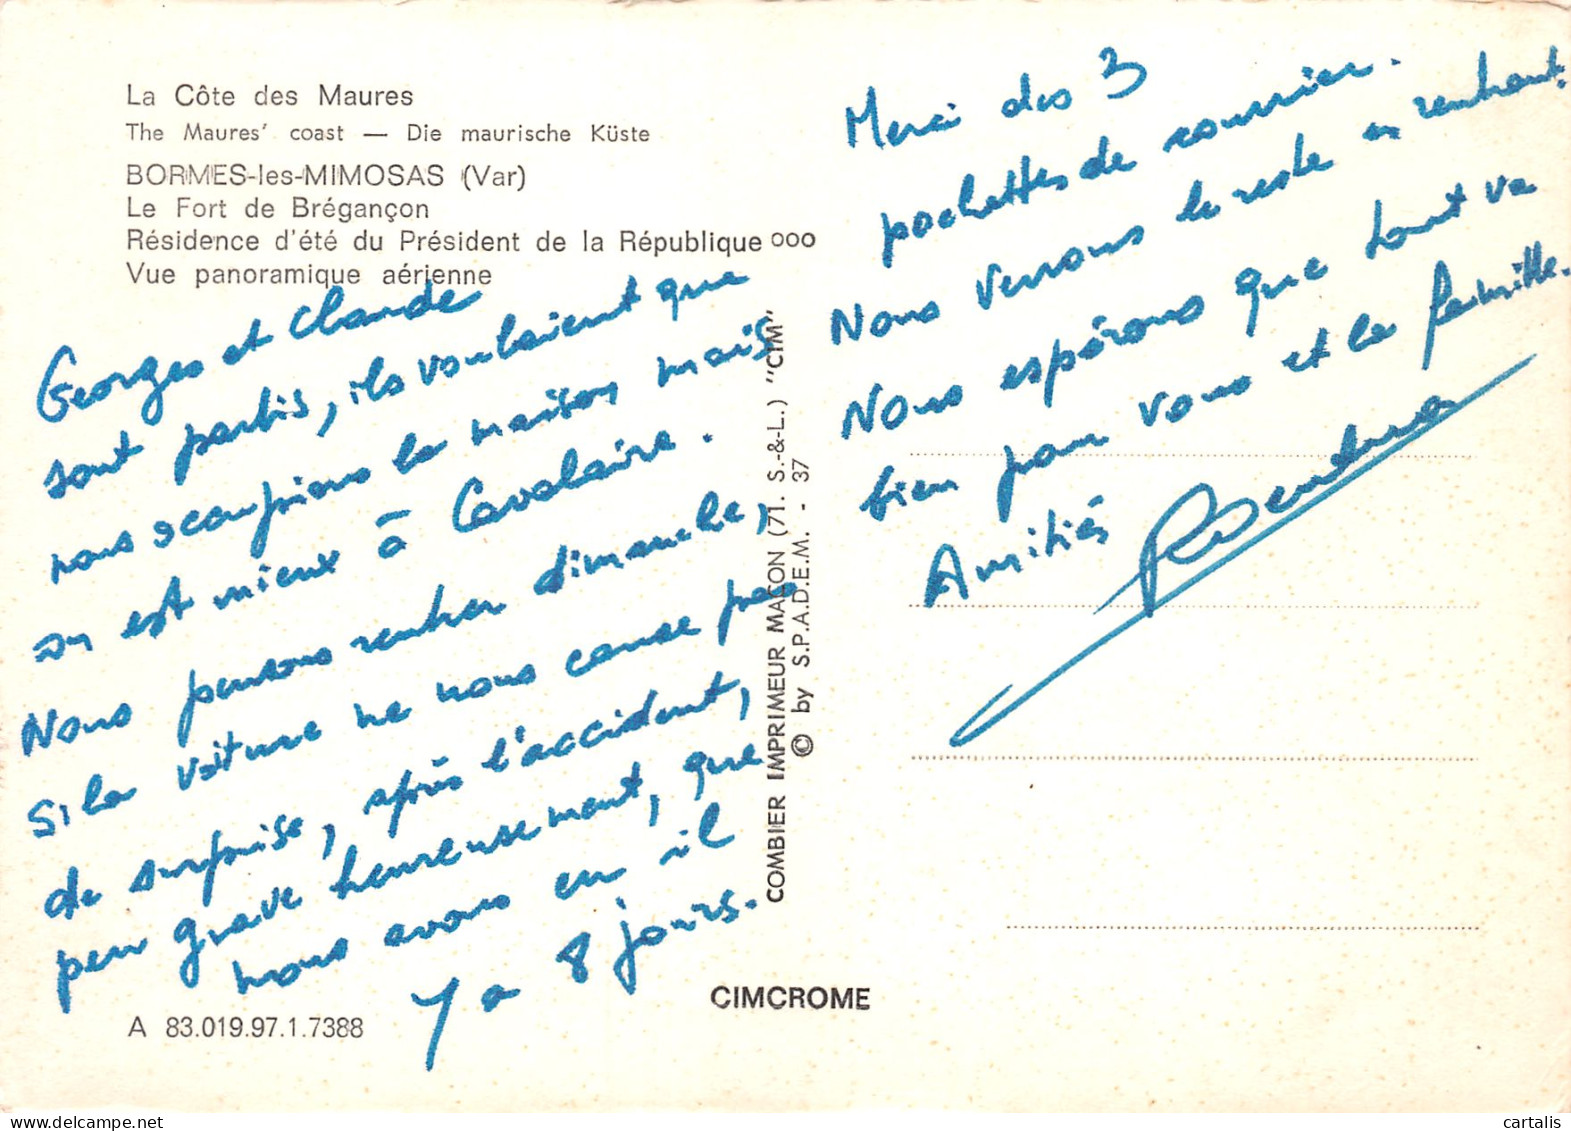 La Côte des Maures
The Maures' coast — Die maurische Küste
BORMES-les-MIMOSAS (Var)
Le Fort de Brégançon
Résidence d'été du Président de la République ooo
Vue panoramique aérienne
Georges et Claude
sont partis, ils voulaient que
nous occupions la maison mais
on est mieux à Cavalaire.
Nous pensons rentrer dimanche,
si la voiture ne nous cause pas
de surprise, après l'accident,
peu grave heureusement, que
nous avons eu il
y a 8 jours.
A 83.019.97.1.7388
COMBIER IMPRIMEUR MACON (71. S.-&-L.) "CIM"
© by S.P.A.D.E.M. - 37
CIMCROME
Merci des 3
pochettes de courrier.
Nous verrons le reste en rentrant.
Nous espérons que tout va
bien pour vous et la famille.
Amitiés
cartalis
delcampe.net